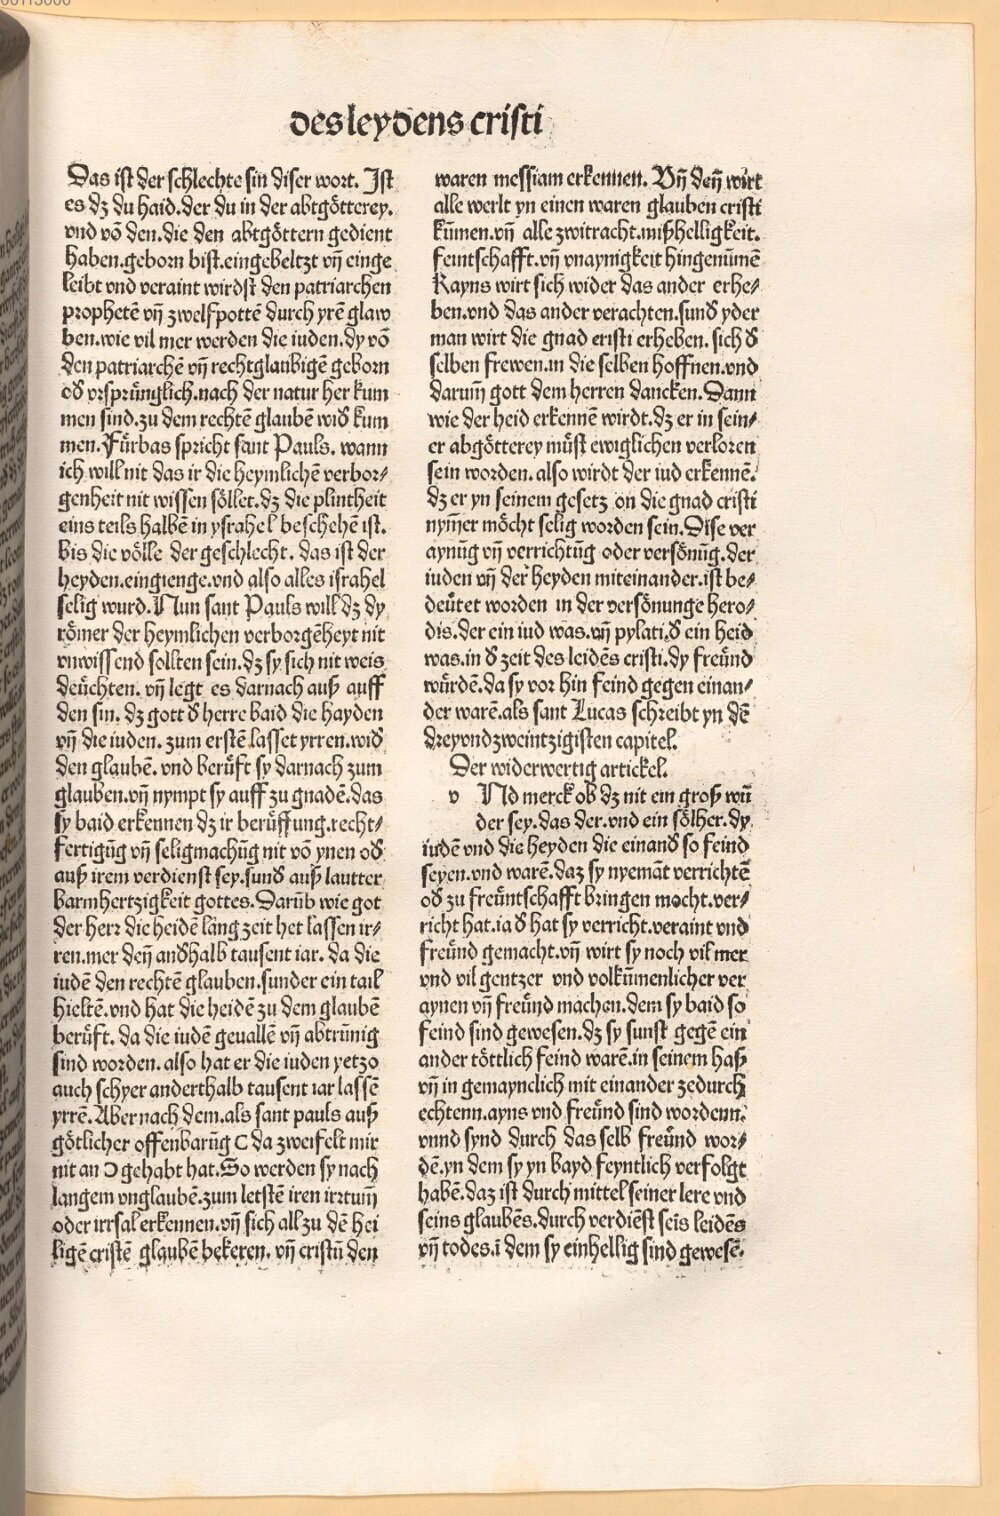 des leydens cristi
Das ist der schlechte sin diser wort. Ist
es dz du haid.der du in der abtgötterey.
vnd võ den.die den abtgöttern gedient
haben.geborn bist.eingebeltzt vñ einge
leibt vnd veraint wirdst den patriarchen
prophetē vñ zwelfpottē durch yrē glaw
ben.wie vil mer werden die iuden.dy võ
den patriarchē vñ rechtglaubigē geborn
oď vrsprünglich.nach der natur her kum
men sind.zu dem rechtē glaubē wiď kum
men.Fürbas spricht sant Pauls. wann
ich will nit das ir die heymlichē verbor⸗
genheit nit wissen söllet.dz die plintheit
eins teils halbē in ysrahel beschehē ist.
bis die völle der geschlecht. das ist der
heyden.eingienge.vnd also alles israhel
selig wurd.Nun sant Pauls will dz dy
römer der heymlichen verborgēheyt nit
vnwissend sollten sein.dz sy sich nit weis
deüchten. vñ legt es darnach auß auff
den sin. dz gott ď herre baid die hayden
vñ die iuden. zum erstē lasset yrren.wiď
den glaubē. vnd berüft sy darnach zum
glauben.vñ nympt sy auff zu gnadē.das
sy baid erkennen dz ir berüffung.recht⸗
fertigũg vñ seligmachũg nit võ ynen oď
auß irem verdienst sey.sunď auß lautter
barmhertzigkeit gottes.Darũb wie got
der herr die heidē lang zeit het lassen ir⸗
ren.mer deñ anďhalb tausent iar. da die
iudē den rechtē glauben.sunder ein tail
hieltē.vnd hat die heidē zu dem glaubē
berüft. da die iudē geuallē vñ abtrũnig
sind worden. also hat er die iuden yetzo
auch schyer anderthalb tausent iar lassē
yrrē.Aber nach dem.als sant pauls auß
götlicher offenbarũg C da zweifelt mir
nit an Ɔ gehabt hat.So werden sy nach
langem vnglaubē.zum letstē iren irrtum̃
oder irrsal erkennen.vñ sich all zu dē hei
ligē cristē glaubē bekeren. vñ cristũ den
waren messiam erkennen. Vñ deñ wirt
alle werlt yn einen waren glauben cristi
kũmen.vñ alle zwitracht.mißhelligkeit.
feintschafft.vñ vnaynigkeit hingenũmē
Kayns wirt sich wider das ander erhe⸗
ben.vnd das ander verachten.sunď yder
man wirt die gnad cristi erheben. sich ď
selben frewen.in die selben hoffnen.vnd
darum̃ gott dem herren dancken.Dann
wie der heid erkennē wirdt.dz er in sein⸗
er abgötterey müst ewiglichen verloren
sein worden. also wirdt der iud erkennē.
dz er yn seinem gesetz on die gnad cristi
nym̃er möcht selig worden sein.Dise ver
aynũg vñ verrichtũg oder versönũg.der
iuden vñ der heyden miteinander.ist be⸗
deütet worden in der versönunge hero⸗
dis.der ein iud was.vñ pylati.ď ein heid
was.in ď zeit des leidēs cristi.dy freünd
würdē.da sy vor hin feind gegen einan⸗
der warē.als sant Lucas schreibt yn dē
dreyvndzweintzigisten capitel.
Der widerwertig artickel.
v Nd merck ob dz nit ein groß wũ
der sey.das der.vnd ein sölher.dy
iudē vnd die heyden die einanď so feind
seyen.vnd warē.daz sy nyemāt verrichtē
oď zu freüntschafft bringen mocht.ver⸗
richt hat.ia ď hat sy verricht.veraint vnd
freünd gemacht.vñ wirt sy noch vil mer
vnd vil gentzer vnd volkũmenlicher ver
aynen vñ freünd machen.dem sy baid so
feind sind gewesen.dz sy sunst gegē ein
ander töttlich feind warē.in seinem haß
vñ in gemaynclich mit einander zedurch
echtenn.ayns vnd freünd sind wordenn.
vnnd synd durch das selb freünd wor⸗
dē.yn dem sy yn bayd feyntlich verfolgt
habē.daz ist durch mittel seiner lere vnd
seins glaubēs.durch verdiēst seīs leidēs
vñ todes.ī dem sy einhellig sind gewesē.